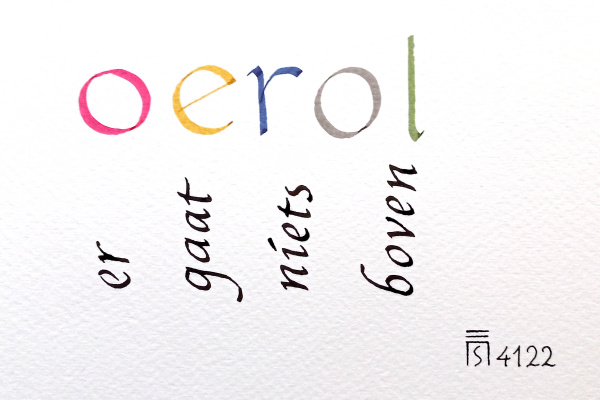 oerol
er
gaat
niets
boven
4122